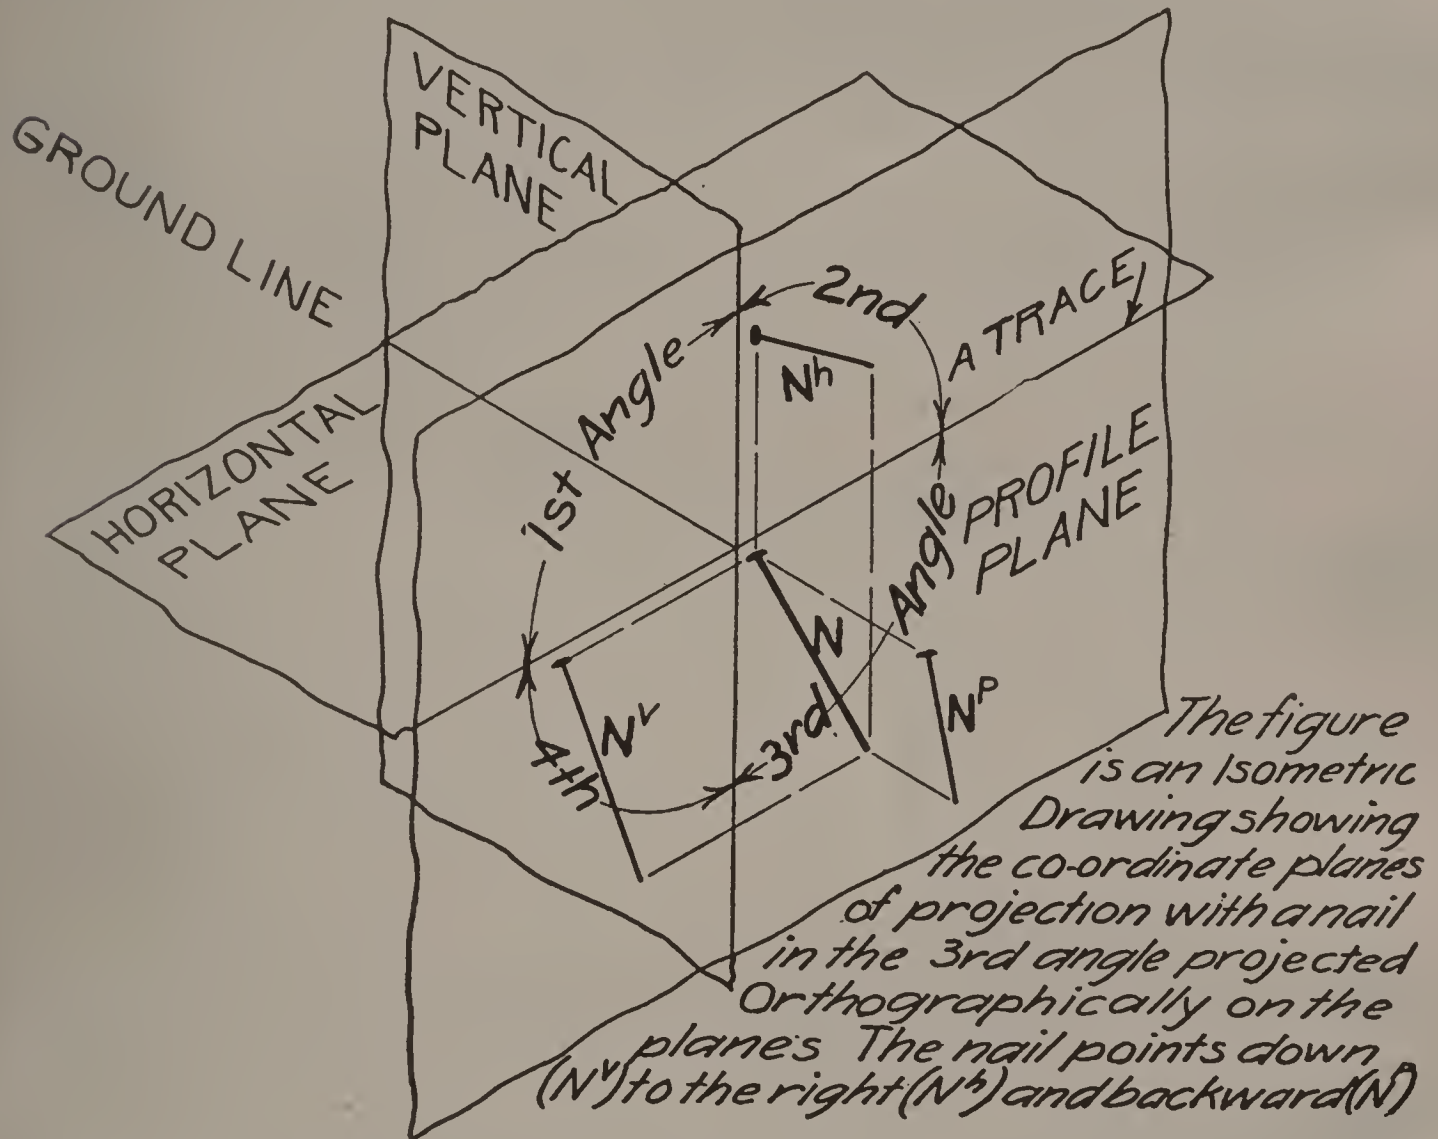 VERTICAL
PLANE
GROUND LINE
HORIZONTAL
PLANE
1st Angle
2nd
A TRACE
Nʰ
PROFILE
PLANE
Angle
3rd
N
Nᵛ
Nᵖ
4th
The figure
is an Isometric
Drawing showing
the co-ordinate planes
of projection with a nail
in the 3rd angle projected
Orthographically on the
planes The nail points down
(Nᵛ) to the right (Nʰ) and backward (Nᵖ)